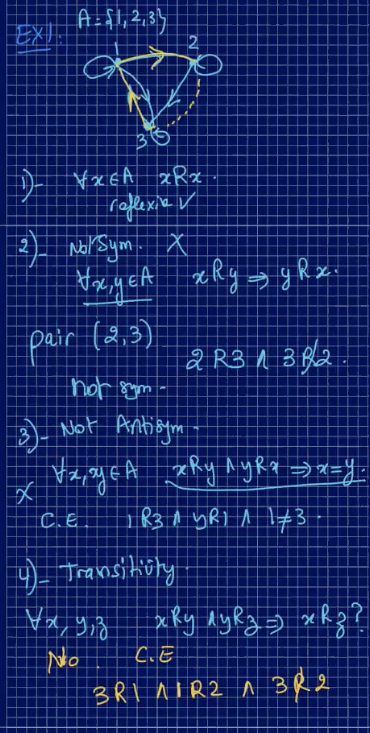 EX1:
A = {1,2,3}
1
2
3
1)- ∀x∈A xRx.
reflexive ✓
2)- Not Sym. X
∀x,y∈A xRy ⇒ yRx.
pair (2,3)
2R3 ∧ 3R̸2.
not sym-
3)- Not Antisym-
X ∀x,y∈A xRy ∧ yRx ⇒ x=y.
C.E. 1R3 ∧ yR1 ∧ 1≠3.
4)- Transitivity.
∀x,y,z xRy ∧ yRz ⇒ xRz?
No. C.E
3R1 ∧ 1R2 ∧ 3R̸2